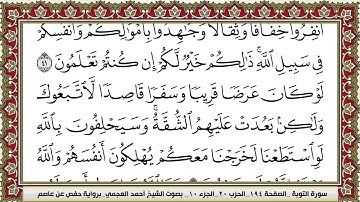 ٱنفِرُوا۟ خِفَافًا وَثِقَالًا وَجَٰهِدُوا۟ بِأَمْوَٰلِكُمْ وَأَنفُسِكُمْ
فِى سَبِيلِ ٱللَّهِ ۚ ذَٰلِكُمْ خَيْرٌ لَّكُمْ إِن كُنتُمْ تَعْلَمُونَ ٤١
لَوْ كَانَ عَرَضًا قَرِيبًا وَسَفَرًا قَاصِدًا لَّٱتَّبَعُوكَ
وَلَٰكِنۢ بَعُدَتْ عَلَيْهِمُ ٱلشُّقَّةُ ۚ وَسَيَحْلِفُونَ بِٱللَّهِ
لَوِ ٱسْتَطَعْنَا لَخَرَجْنَا مَعَكُمْ يُهْلِكُونَ أَنفُسَهُمْ وَٱللَّهُ
سورة التوبة _ الصفحة ١٩٤ _ الحزب ٢٠ _ الجزء ١٠ _ بصوت الشيخ أحمد العجمي _ برواية حفص عن عاصم